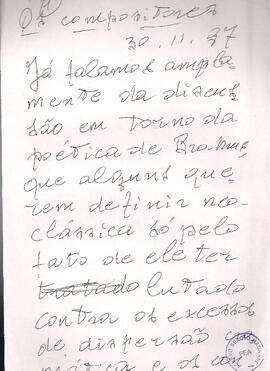 Os compositores
30.11.97
Já falamos ampla-
mente da discus
são em torno da
poética de Brahms,
que alguns que-
rem definir neo-
clássica só pelo
fato de ele ter
tratado lutado
contra os excessos
de dispersão
e os
FEA